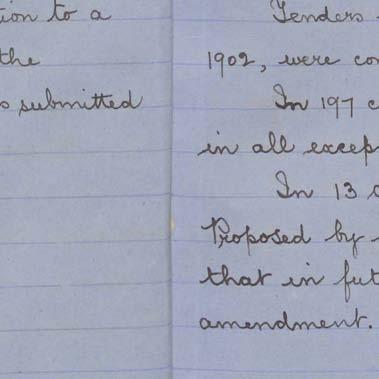 ion to a
the
s submitted
Tenders
1902, were con
In 197 c
in all excep
In 13 c
Proposed by
that in fut
amendment.